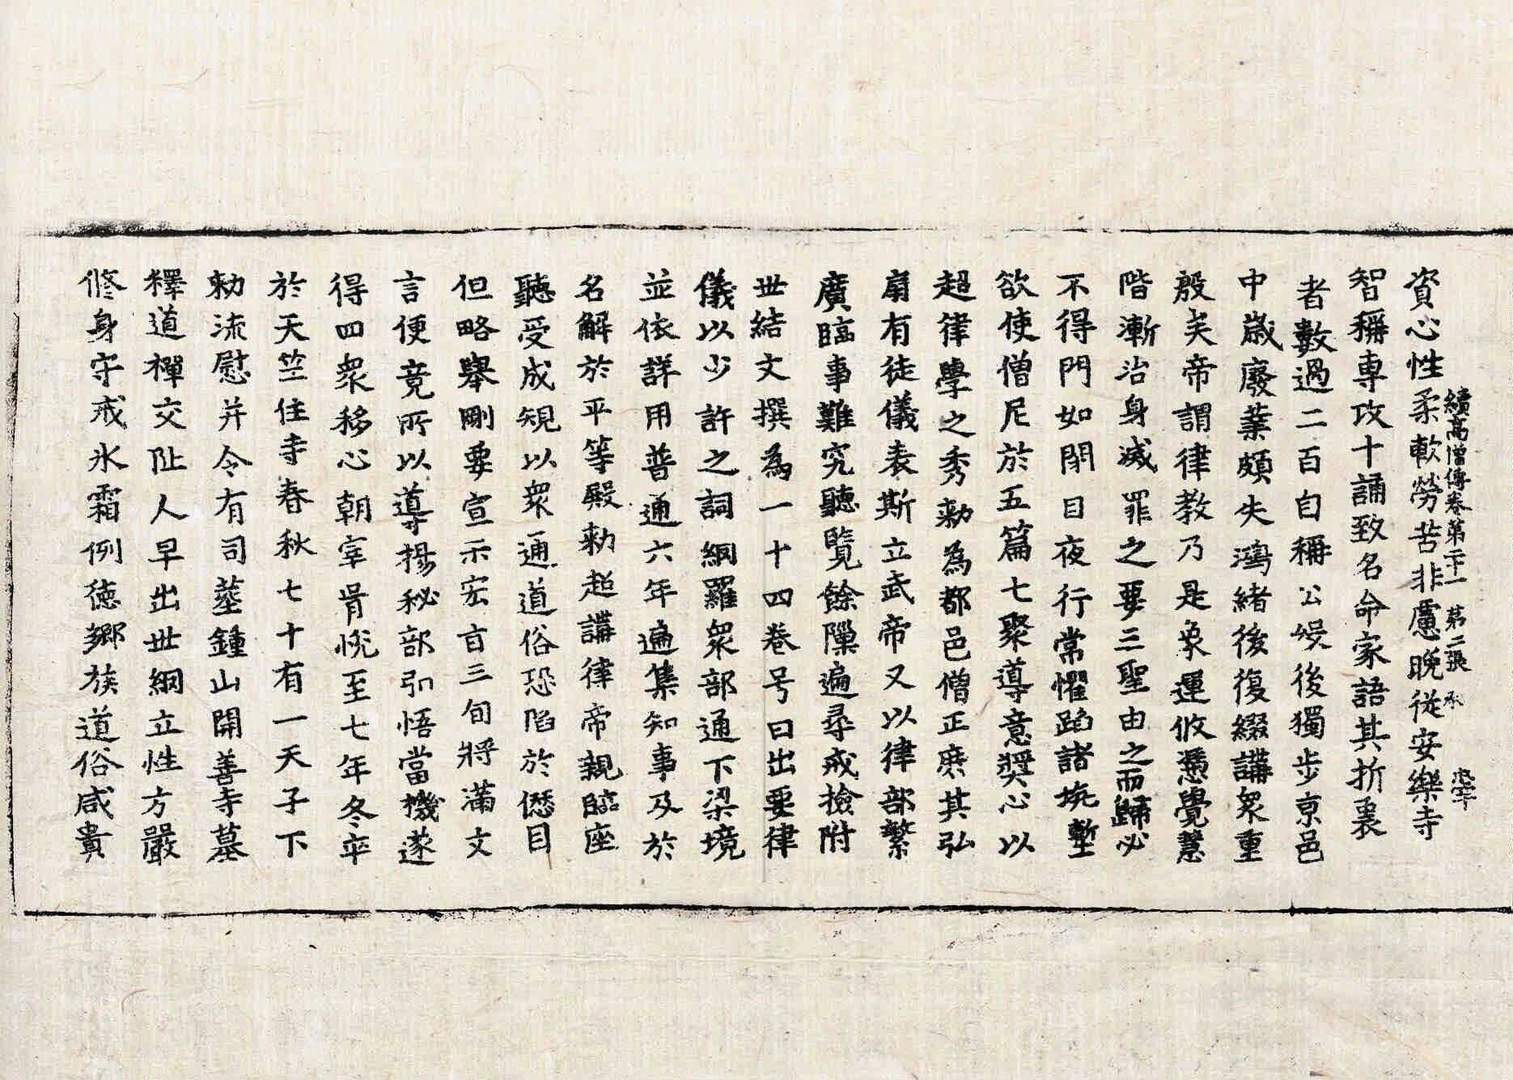 續高僧傳卷第二十一　第二張　承
資心性柔軟勞苦非慮晚從安樂寺
智稱專攻十誦致名命家語其折衷
者數過二百自稱公㱕後獨步京邑
中歲廢業頗失鴻緒後復綴講衆重
殷矣帝謂律教乃是象運攸憑覺慧
階漸治身滅罪之要三聖由之而歸必
不得門如閉目夜行常懼蹈諸坑塹
欲使僧尼於五篇七聚導意奬心以
超律學之秀勅為都邑僧正庶其弘
扇有徒儀表斯立武帝又以律部繁
廣臨事難究聽覽餘隟遍尋戒撿附
世結文撰為一十四卷号曰出要律
儀以少許之詞綱羅衆部通下梁境
並依詳用普通六年遍集知事及於
名解於平等殿勅超講律帝親臨座
聽受成規以衆通道俗恐陷於𠎝目
但略舉剛要宣示宏旨三旬將滿文
言便竟所以導揚秘部弘悟當機遂
得四衆移心朝宰胥悅至七年冬卒
於天竺住寺春秋七十有一天子下
勅流慰并令有司葬鍾山開善寺墓
釋道禪交阯人早出世網立性方嚴
修身守戒氷霜例德鄉族道俗咸貴